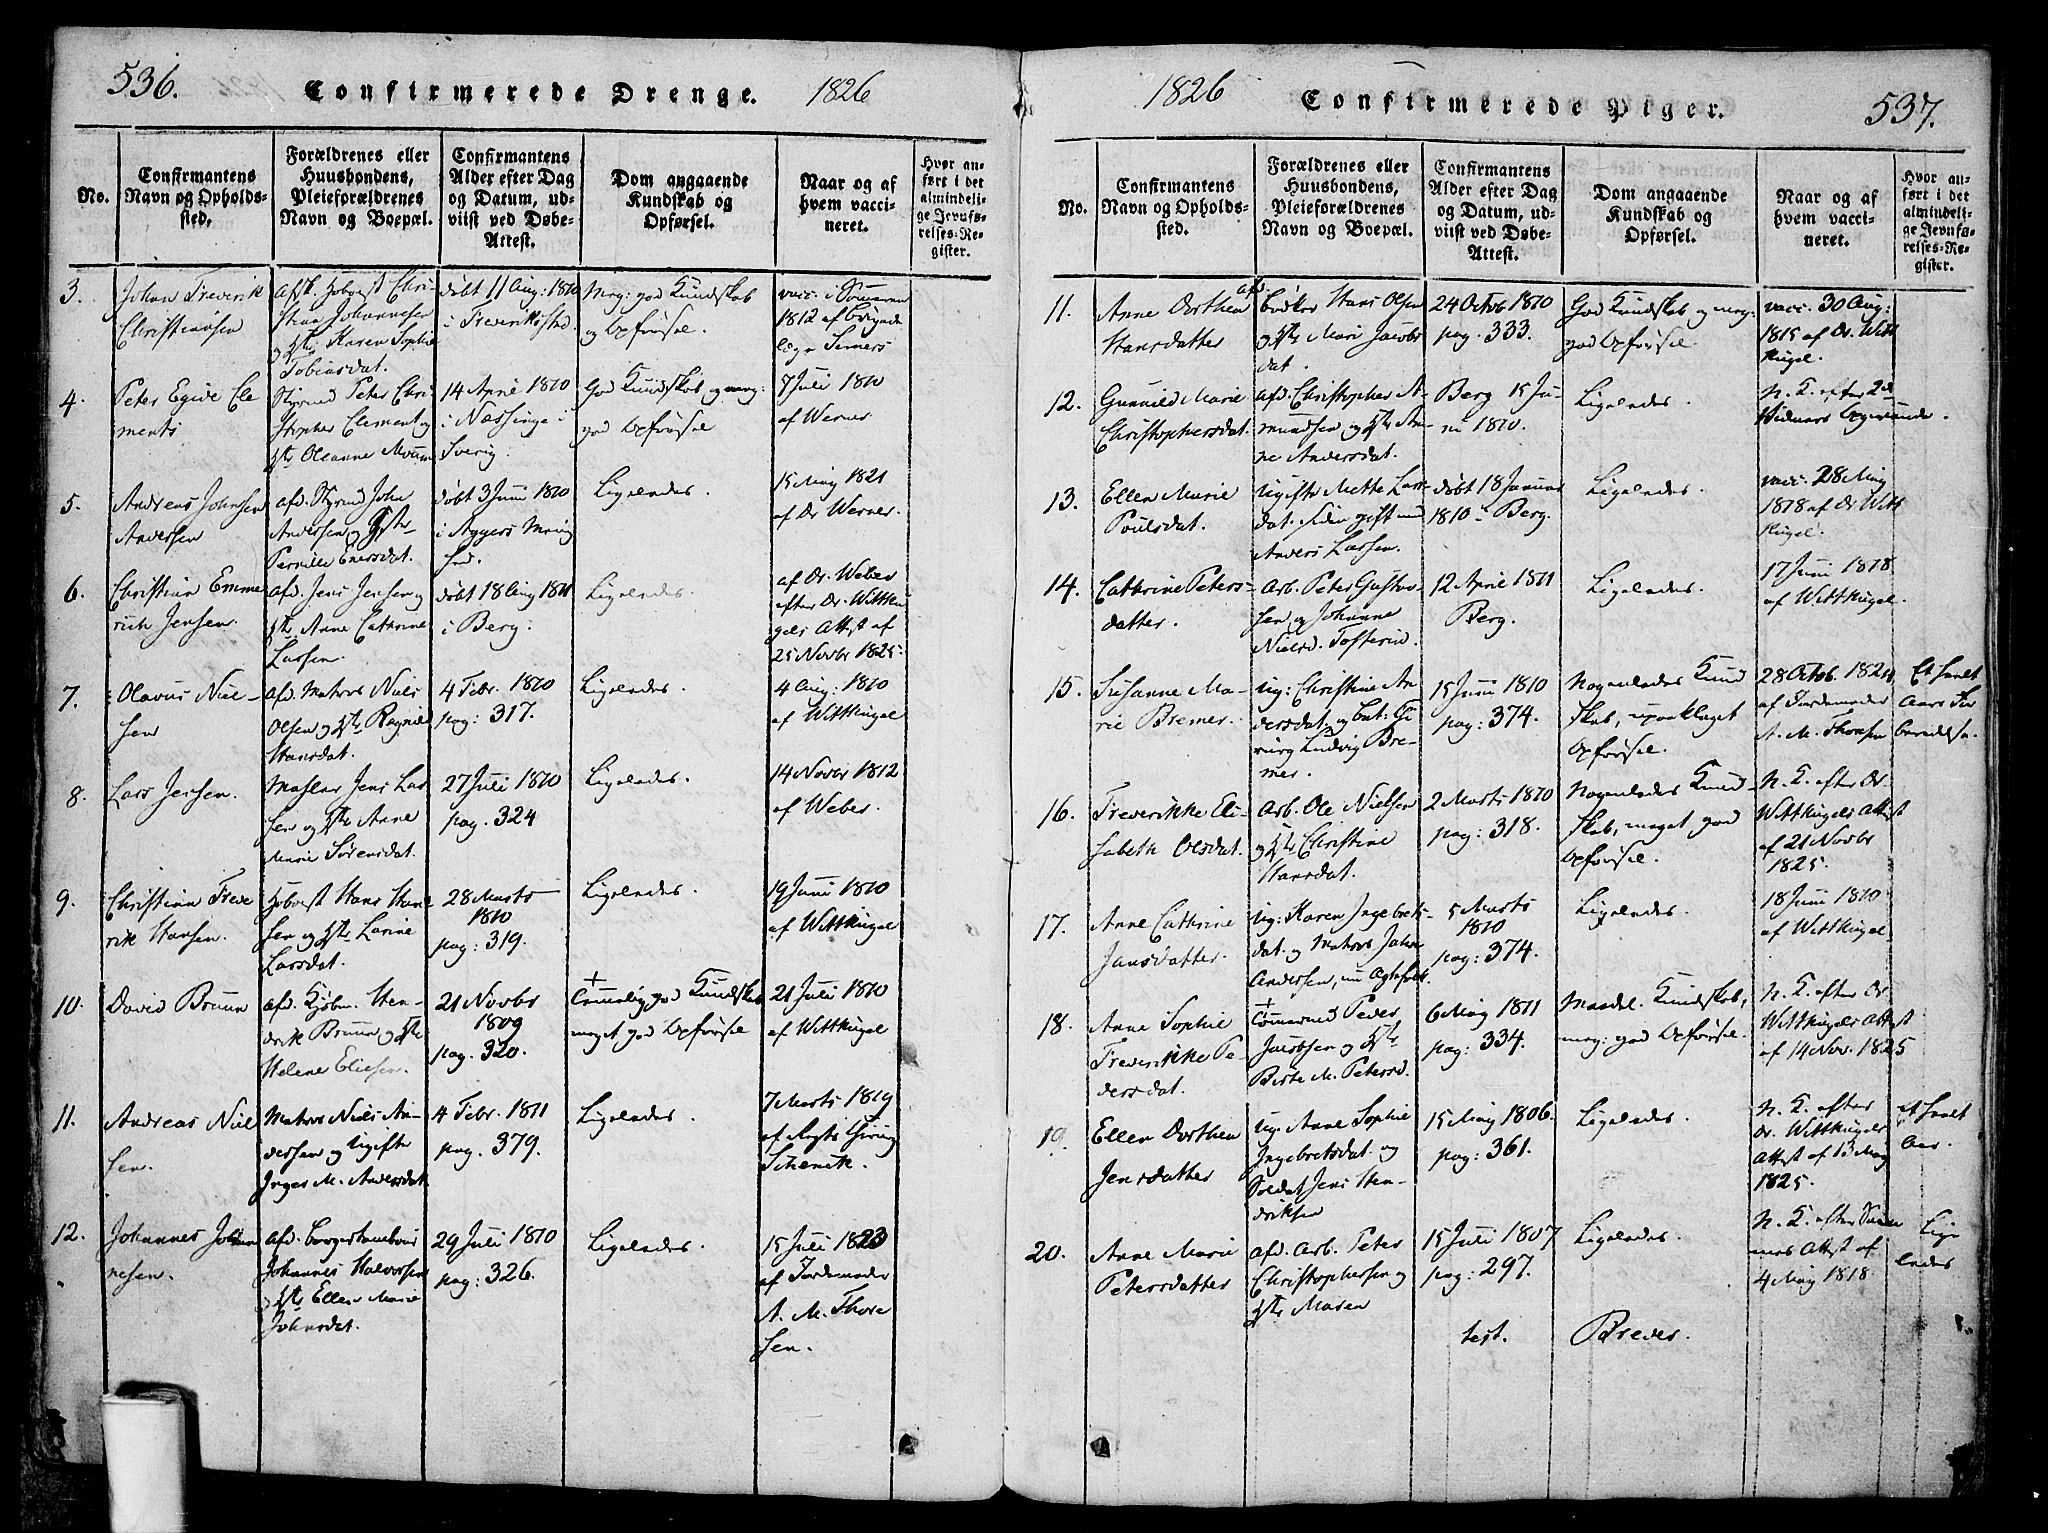 536.
Confirmerede Drenge.
1826
No.
Confirmantens
Navn og Opholds-
sted.
Forældrenes eller
Huusbondens,
Pleieforældrenes
Navn og Boepæl.
Confirmantens
Alder efter Dag
og Datum, ud-
viist ved Døbe-
Attest.
Dom angaaende
Kundskab og
Opførsel.
Naar og af
hvem vacci-
neret.
Hvor an-
ført i det
almindeli-
ge Jevnfø-
relses-Re-
gister.
3.
Johan Frederik
Christiansen
Tobiasdat.
døbt 11 Aug: 1810
i Frederikstad.
Meg: god Kundskab
og Opførsel.
1812 af
4.
Peter Cle
ments
Styrmd Peter Chri-
stopher Clement og
Oleanne
14 April 1810
i Nassinge i
Sverig.
God Kundskab og meg:
god Opførsel
7 Juli 1810
af Werner
5.
Andreas Johnsen
Andersen
afd. Styrmd John
Andersen og
Pernille Enersdat.
døbt 3 Juni 1810
i Aggers
Ligeledes.
15 May 1821
af Dr Werner.
6.
Christian Emme
rich Jensen.
afd. Jens Jensen og
Anne Cathrine
Larsen.
døbt 18 Aug 1811
i Berg.
Ligeledes.
af Dr. Weber
efter Dr. Wittku
gels Attest af
25 Novbr 1825.
7.
Olavus Niel-
sen
afd. Matros Niels
Olsen og Ragnild
Hansdat.
4 Febr. 1810
pag: 317.
Ligeledes.
4 Aug: 1810
af Wittkugel
8.
Lars Jensen.
Mægler Jens Lar
sen og Anne
Marie Sørensdat.
27 Juli 1810
pag. 324
Ligeledes.
14 Novbr 1812
af Weber.
9.
Christian Frede
rik Hansen.
Hans Han
sen og Larine
Larsdat.
28 Marts
1810
pag: 319.
Ligeledes.
19 Juni 1810
af Wittkugel
10.
David Bruun
afd. Kjøbm. Hen-
drik Bruun og
Helene Eliesen.
21 Novbr
1809
pag. 320.
Temmelig god Kundskab
meget god Opførsel
21 Juli 1810
af Wittkugel
11.
Andreas Niel
sen.
Matros Niels An-
dersen og Ugifte
Inger M. Andersdat.
4 Febr. 1811
pag. 379.
Ligeledes.
7 Marts 1819
af
12.
Johannes Johan
nesen.
afd.
Johannes Halvorsen
Ellen Marie
Johnsdat.
29 Juli 1810
pag: 326.
Ligeledes.
15 Juli 1823
af Jordemoder
A. M. Thore
sen.
1826
Confirmerede Piger.
537.
No.
Confirmantens
Navn og Opholds-
sted.
Forældrenes eller
Huusbondens,
Pleieforældrenes
Navn og Boepæl.
Confirmantens
Alder efter Dag
og Datum, ud-
viist ved Døbe-
Attest.
Dom angaaende
Kundskab og
Opførsel.
Naar og af
hvem vacci-
neret.
Hvor an-
ført i det
almindeli-
ge Jevnfø-
relses-Re-
gister.
11.
Anne Dorthea
Hansdatter
afd.
Bødker Hans Olsen
og Mari Jacobs
dat.
24 Octob 1810
pag. 333.
God Kundskab og meg:
god Opførsel.
vacc. 30 Aug:
1815 af Dr. Witt
kugel.
12.
Gunnild Marie
Christophersdat.
afd. Christopher A-
mundsen og An-
ne Andersdat.
Berg 15 Ju-
ni 1810.
Ligeledes.
N. K. efter 2de
Vidners Opgivende.
13.
Ellen Marie
Poulsdat.
Ugifte Mette Lars-
dat. siden gift med
Anders Larsen.
døbt 18 Januar
1810 i Berg.
Ligeledes.
vacc. 28 May
1818 af Dr Witt
kugel.
14.
Cathrine Peters-
datter.
Arb. Peter Gustav-
sen og Johanne
12 April 1811
Berg.
Ligeledes.
17 Juni 1818
af Wittkugel.
15.
Susanne Ma-
rie Bremer.
ug: Christine An
dersdat. og
Ludvig Bre-
mer.
15 Juni 1810
pag: 374.
Nogenledes Kund
skab, upaaklaget
Opførsel.
28 Octob. 1821
af Jordemoder
A. M. Thoresen
Et halvt
Aars For
beredelse.
16.
Frederikke Eli-
sabeth Olsdat.
Arb. Ole Nielsen
og Christine
Hansdat.
2 Marts 1810
pag: 318.
Nogenledes Kund-
skab, meget god
Opførsel.
N. K. efter Dr.
Wittkugels Attest
af 21 Novbr
1825.
17.
Anne Cathrine
Jansdatter.
ug: Karen Ingebrets-
dat. og Matros John
Andersen, nu Ægtefolk.
5 Marts
1810
pag: 374.
Ligeledes.
18 Juni 1810
af Wittkugel
18.
Anne Sophie
Frederikke Pe-
dersdat.
Tømmermd Peder
Jacobsen og
Birte M. Petersd.
6 May 1811
pag: 334.
Maadel. Kundskab,
meg: god Opførsel.
N. K. efter Dr
Wittkugels Attest
af 14 Nov. 1825
19.
Ellen Dorthea
Jensdatter
ug. Anne Sophie
Ingebretsdat. og
Soldat Jens Hen-
driksen
15 May 1806.
pag: 361.
Ligeledes.
N. K. efter
Dr. Wittkugels
Attest af 13 May
1825.
et halvt
Aar.
20.
Anne Marie
Petersdatter
afd. Arb. Peter
Christophersen og
Maren
15 Juli 1807
pag: 297.
Ligeledes.
N. K. efter
Attest af
4 May 1818
Lige
ledes
test.
Breder.